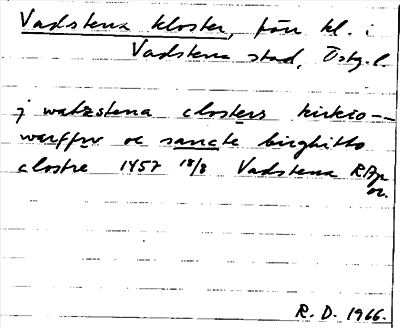 Vadstena kloster, förr kl. i
Vadstena stad, Östg. l.
j watzstena closters kirkio-
warffw oc sancte birghitto
clostre 1457 18/8 Vadstena RAp
or.
R. D. 1966.